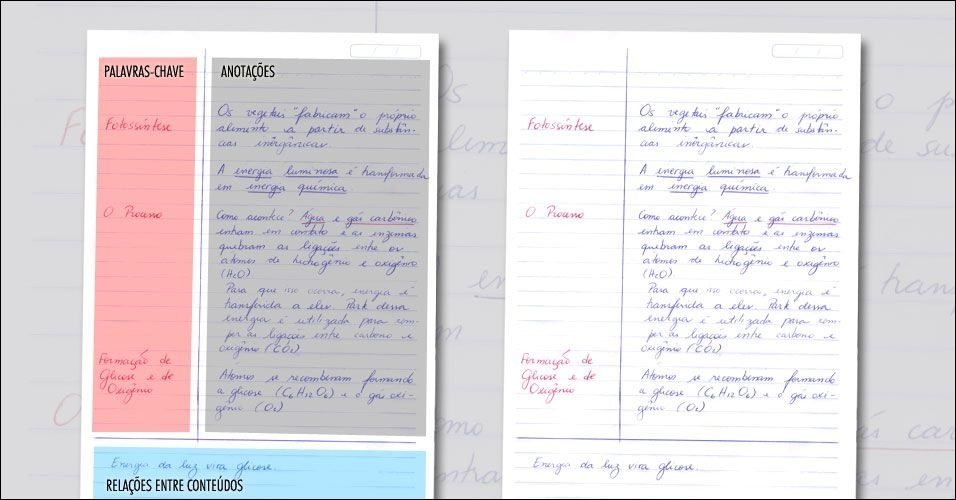 PALAVRAS-CHAVE
ANOTAÇÕES
Fotossíntese
Os vegetais "fabricam" o próprio
alimento a partir de substân-
cias inorgânicas.
A energia luminosa é transformada
em energia química.
O Processo
Como acontece? Água e gás carbônico
entram em contato e as enzimas
quebram as ligações entre os
átomos de hidrogênio e oxigênio
(H2O)
Para que isso ocorra, energia é
transferida a eles. Parte dessa
energia é utilizada para rom-
per as ligações entre carbono e
oxigênio (CO2).
Formação de
Glicose e de
Oxigênio
Átomos se recombinam formando
a glicose (C6H12O6) e o gás oxi-
gênio (O2)
Energia da luz vira glicose.
RELAÇÕES ENTRE CONTEÚDOS
Fotossíntese
Os vegetais "fabricam" o próprio
alimento a partir de substân-
cias inorgânicas.
A energia luminosa é transformada
em energia química.
O Processo
Como acontece? Água e gás carbônico
entram em contato e as enzimas
quebram as ligações entre os
átomos de hidrogênio e oxigênio
(H2O)
Para que isso ocorra, energia é
transferida a eles. Parte dessa
energia é utilizada para rom-
per as ligações entre carbono e
oxigênio (CO2).
Formação de
Glicose e de
Oxigênio
Átomos se recombinam formando
a glicose (C6H12O6) e o gás oxi-
gênio (O2)
Energia da luz vira glicose.